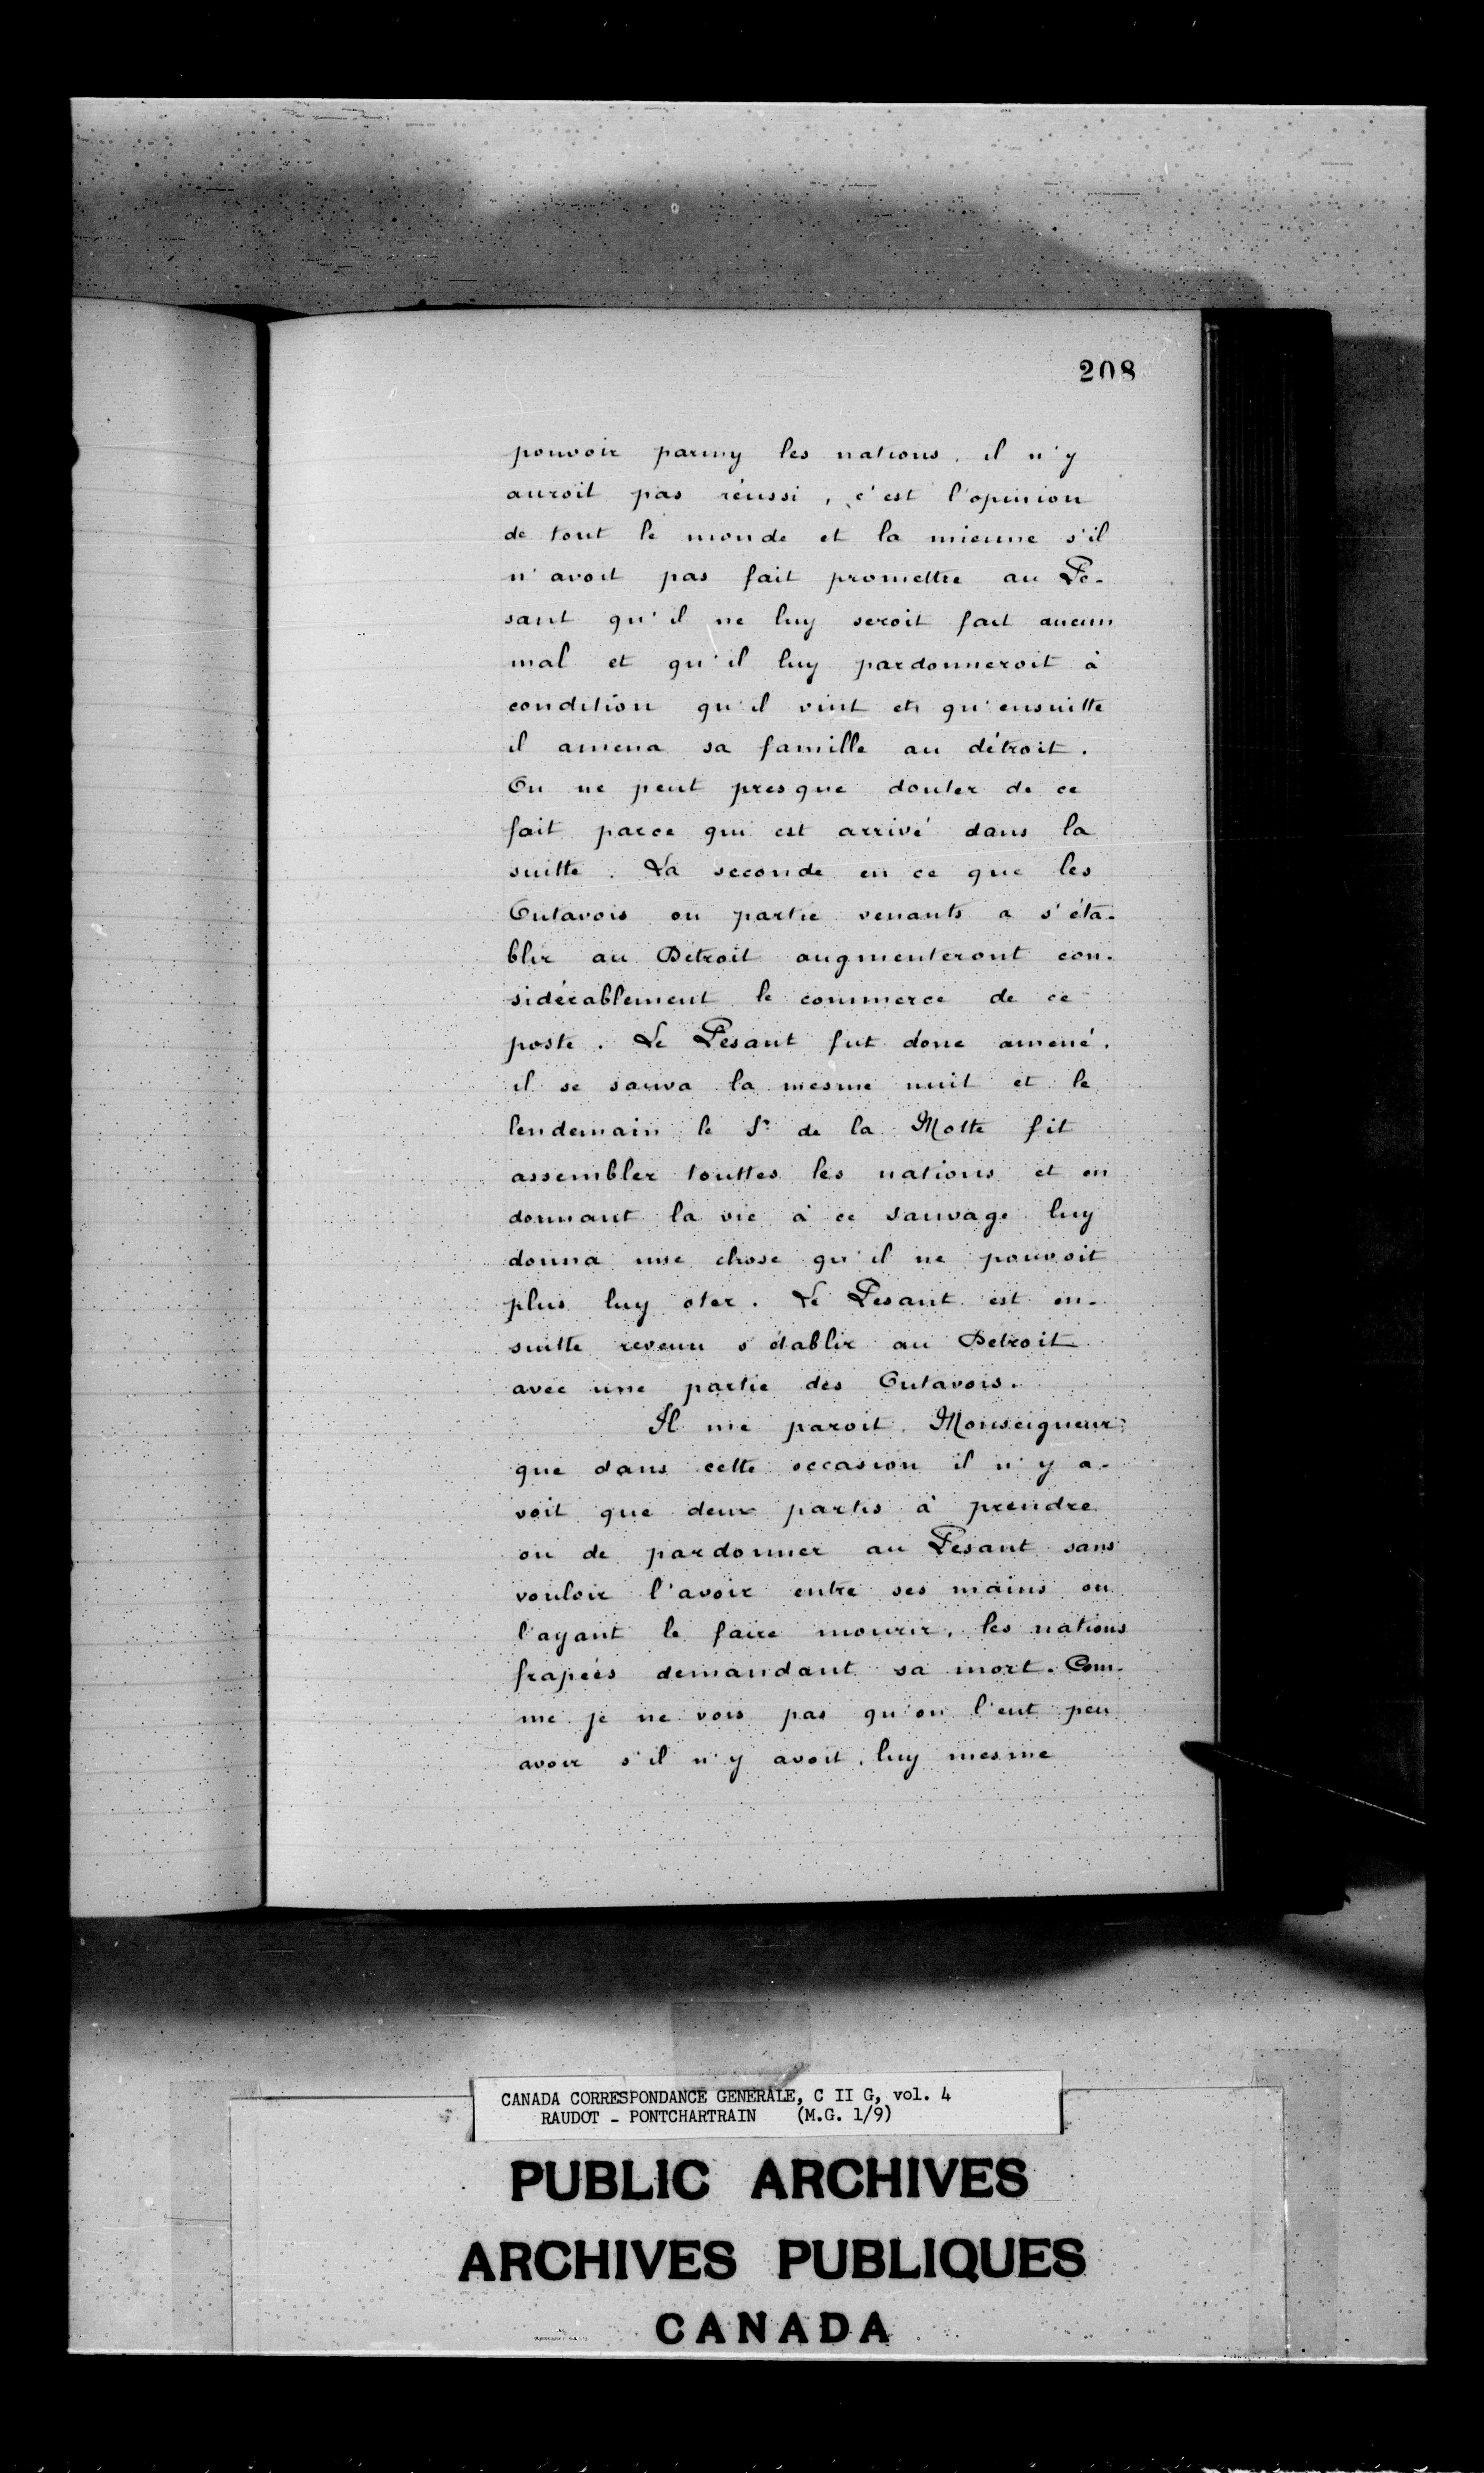 208
pouvoir parmy les nations, il n'y
auroit pas réussi, c'est l'opinion
de tout le monde et la mienne s'il
n'avoit pas fait promettre au Pe-
sant qu'il ne luy seroit fait aucun
mal et qu'il luy pardonneroit à
condition qu'il vint et qu'ensuitte
il amena sa famille au détroit.
On ne peut presque douter de ce
fait parce qui est arrivé dans la
suitte. La seconde en ce que les
Outavois ou partie venants a s'éta-
blir au Detroit augmenteront con-
sidérablement le commerce de ce
poste. Le Pesant fut donc amené.
il se sauva la mesme nuit et le
lendemain le Sr de la Motte fit
assembler touttes les nations et en
donnant la vie à ce sauvage luy
donna une chose qu'il ne pouvoit
plus luy oter. Le Pesant est en-
suitte revenu s'établir au Detroit
avec une partie des Outavois.
Il me paroit, Monseigneur,
que dans cette occasion il n'y a-
voit que deux partis à prendre
ou de pardonner au Pesant sans
vouloir l'avoir entre ses mains ou
l'ayant le faire mourir, les nations
frapées demandant sa mort. Com-
me je ne vois pas qu'on l'eut peu
avoir s'il n'y avoit, luy mesme
CANADA CORRESPONDANCE GENERALE, C II G, vol. 4
RAUDOT - PONTCHARTRAIN (M.G. 1/9)
PUBLIC ARCHIVES
ARCHIVES PUBLIQUES
CANADA